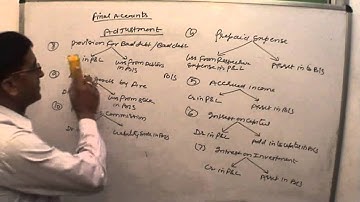 Final Accounts
Adjustment
(8) Provision For Bad debt / Bad debt
in P&L
Less From Debtors in B/S
B/S
(9)
by Fire
Dr
Less From
in B/S
(10)
Commission
Dr
Liability Side in B/S
Prepaid Expense
Less From Respective Expense in P&L
Asset in B/S
(5) Accrued income
Cr in P&L
Asset in B/S
(6) Interest on Capital
Dr in P&L
Add in Capital in B/S
(7) Interest on Investment
Cr in P&L
Asset in B/S